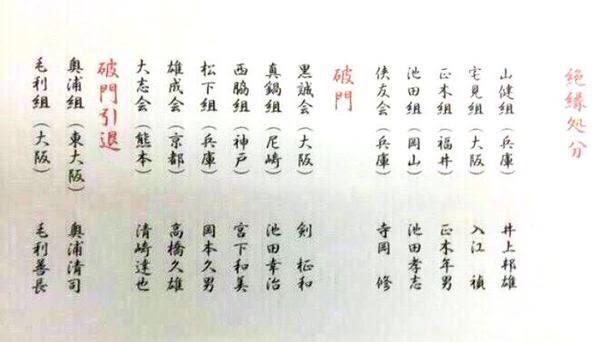 絶縁処分
山健組（兵庫） 井上邦雄
宅見組（大阪） 入江　禎
正木組（福井） 正木年男
池田組（岡山） 池田孝志
侠友会（兵庫） 寺岡　修
破門
黒誠会（大阪） 剣　柾和
真鍋組（尼崎） 池田幸治
西脇組（神戸） 宮下和美
松下組（兵庫） 岡本久男
雄成会（京都） 高橋久雄
大志会（熊本） 清崎達也
破門引退
奥浦組（東大阪） 奥浦清司
毛利組（大阪） 毛利善長